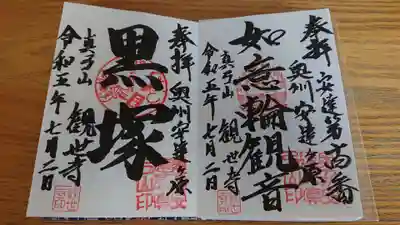 奉拝 安達第十四番
奥州安達ヶ原
如意輪観音
真弓山 観世寺
令和五年七月二日
奉拝 奥州安達ヶ原
黒塚
真弓山 観世寺
令和五年七月二日